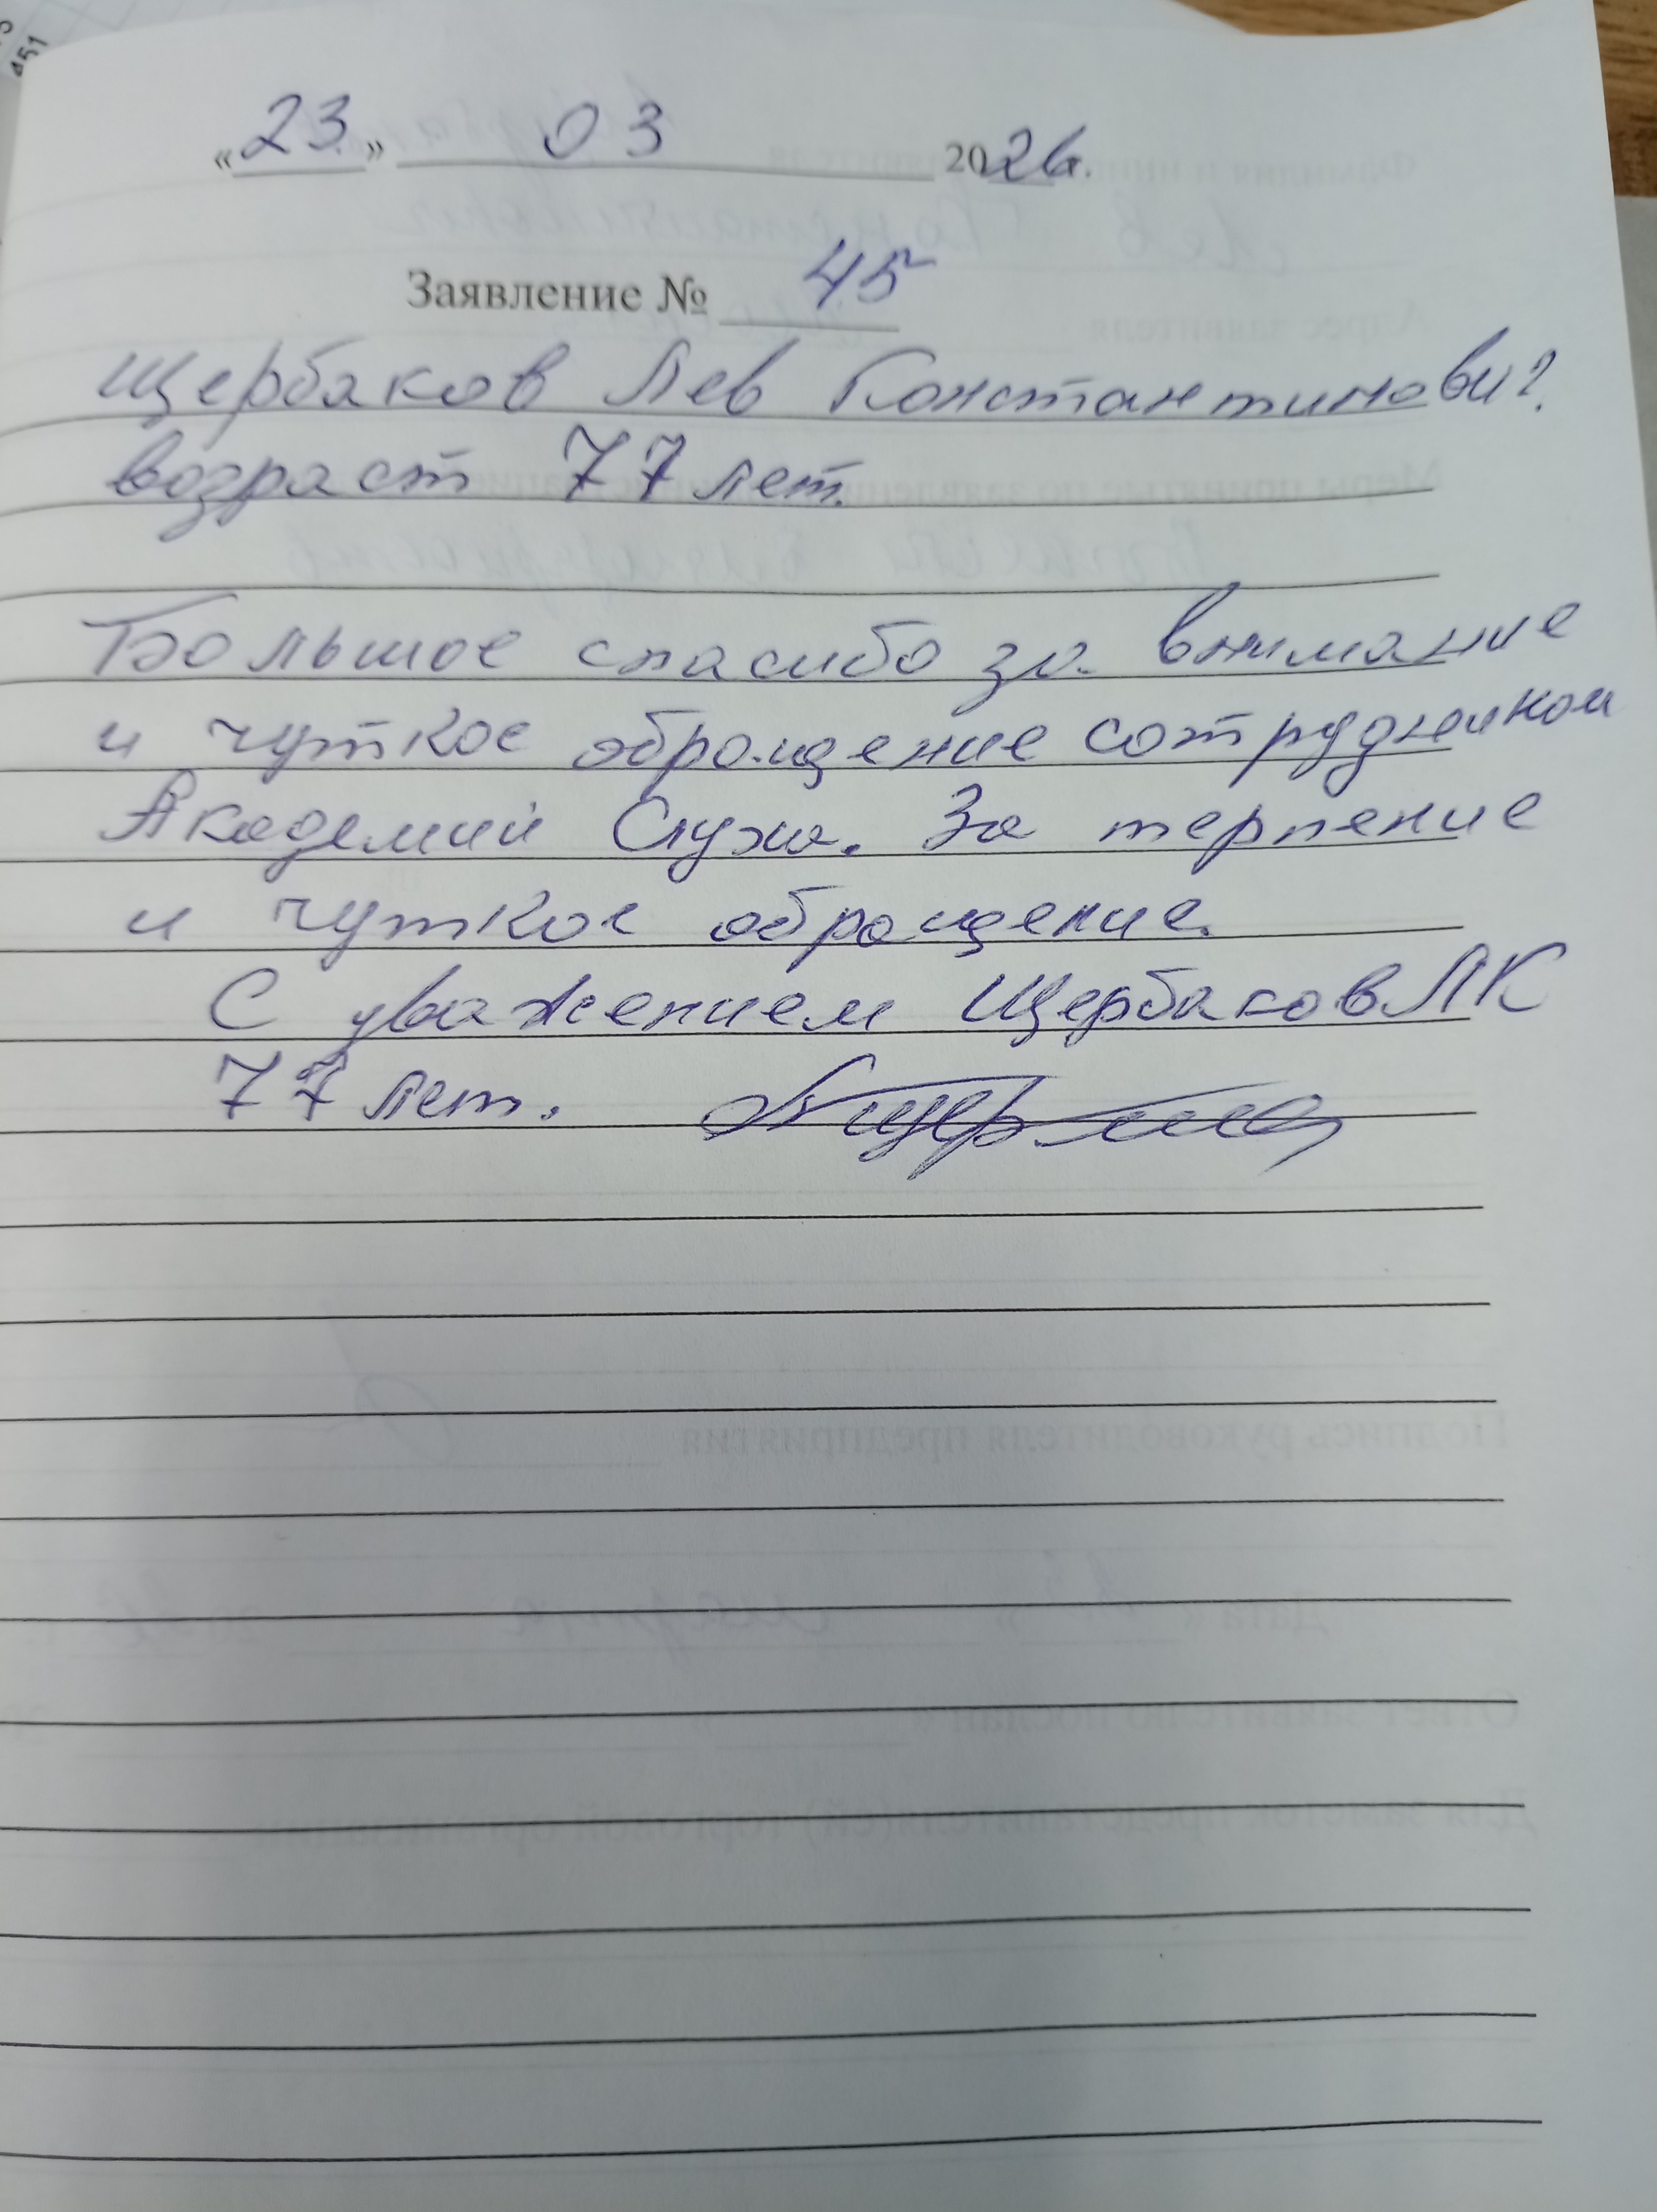 451
«23» 03 2026г.
Заявление № 45
Щербаков Лев Константинович.
возраст 77 лет.
Большое спасибо за внимание
и чуткое обращение сотрудникам
Академии Слуха. За терпение
и чуткое обращение.
С уважением Щербаков ЛК
77 лет.